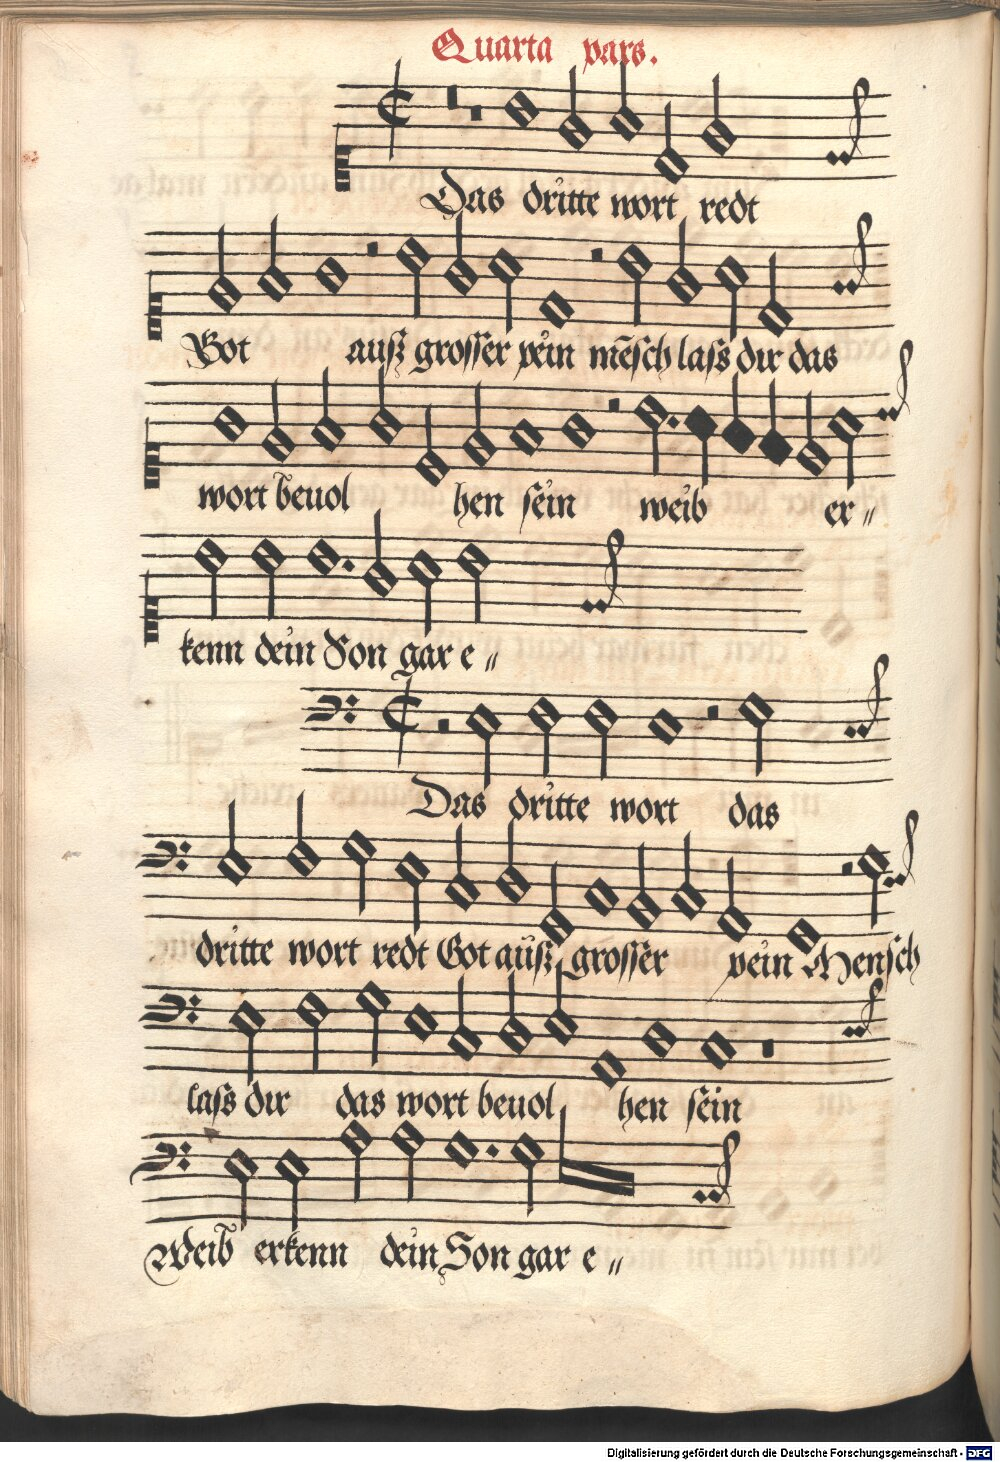 Quarta pars.
Das dritte wort redt
Got ausz grosser pein mēsch lass dir das
wort beuol hen sein weib er〃
kenn dein Son gar e〃
Das dritte wort das
dritte wort redt Got ausz grosser pein Mensch
lass dir das wort beuol hen sein
Weib erkenn dein Son gar e〃
Digitalisierung gefördert durch die Deutsche Forschungsgemeinschaft - DFG